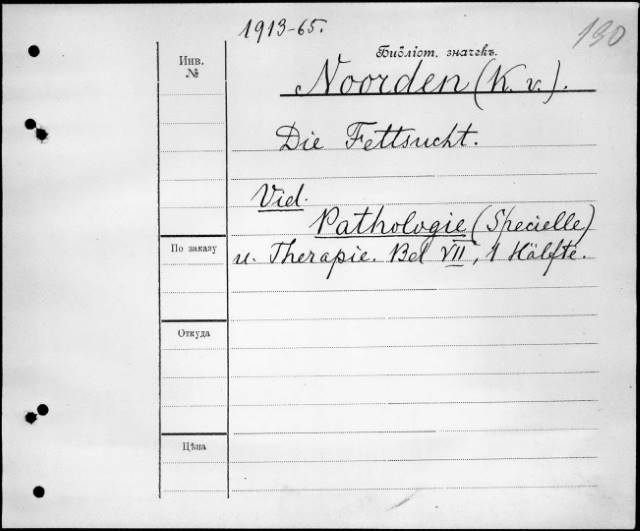 1913-65.
190
Библіот. значекъ.
Инв.
№
Noorden (K. v.).
Die Fettsucht.
Vid.
Pathologie (Specielle)
u. Therapie. Bd VII, 1 Hälfte.
По заказу
Откуда
Цѣна